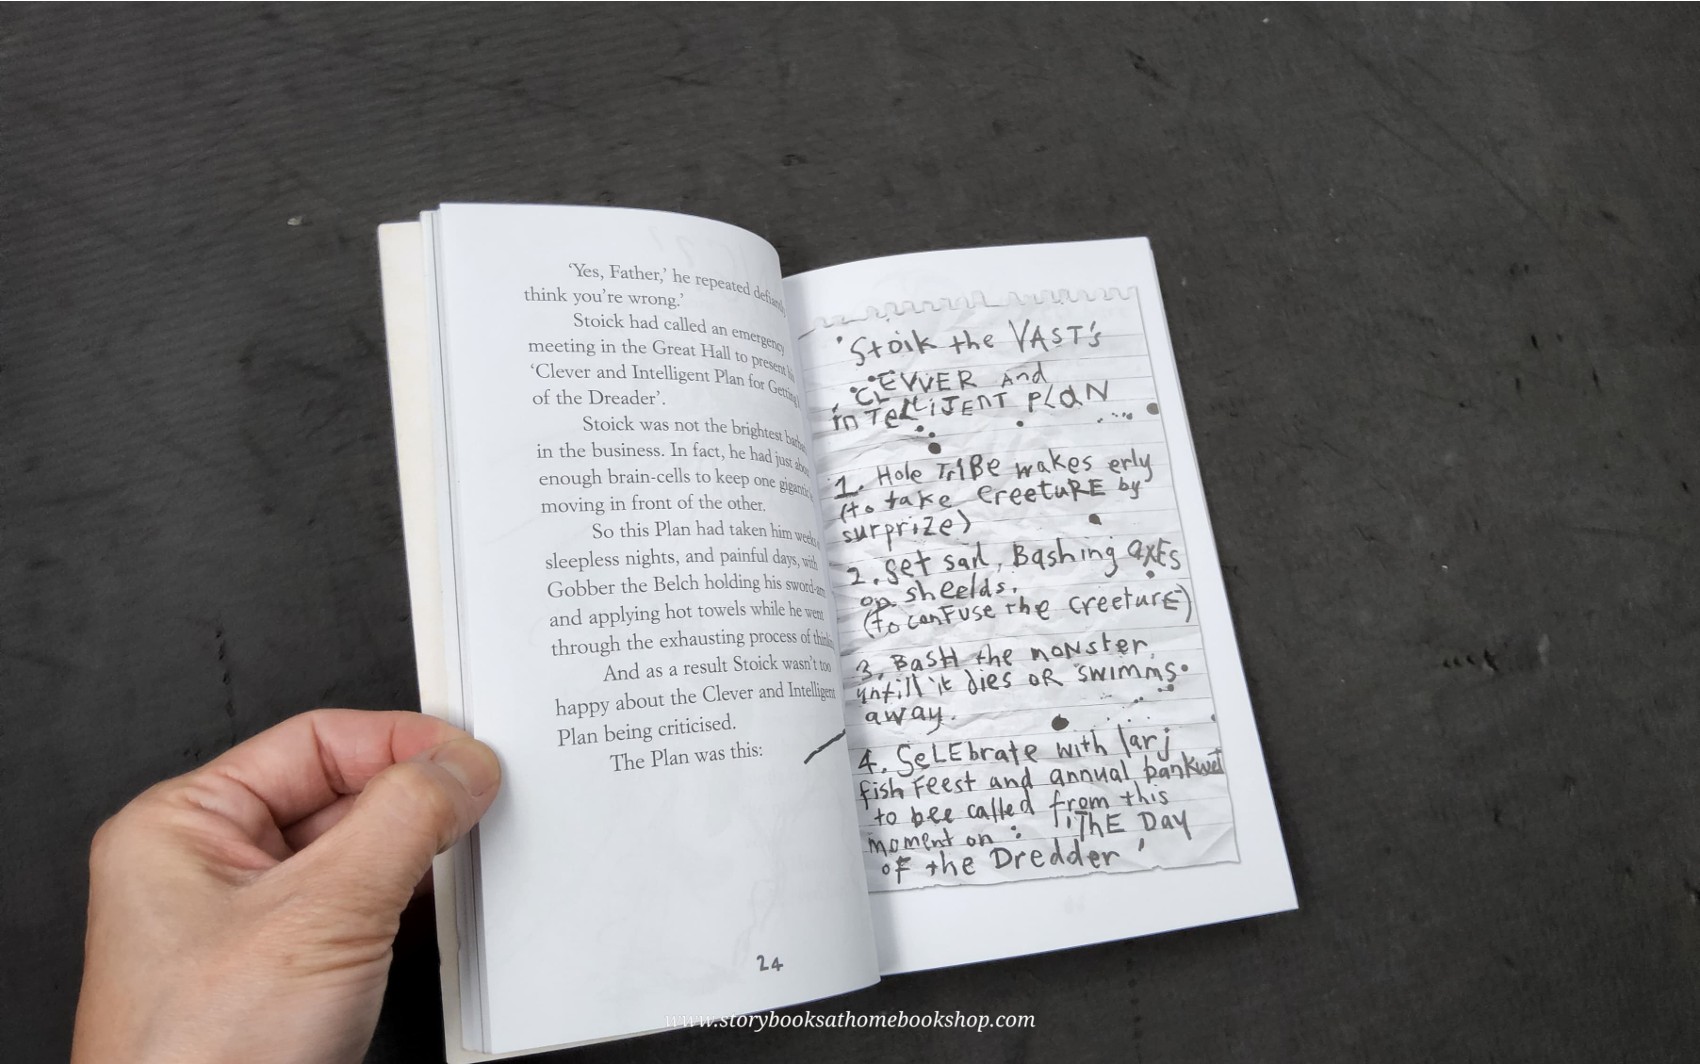 'Yes, Father,' he repeated
think you're wrong.'
Stoick had called an emergency
meeting in the Great Hall to present
'Clever and Intelligent Plan for Getting
of the Dreader'.
Stoick was not the brightest
in the business. In fact, he had just
enough brain-cells to keep one
moving in front of the other.
So this Plan had taken him weeks
sleepless nights, and painful days, with
Gobber the Belch holding his
and applying hot towels while he went
through the exhausting process of
And as a result Stoick wasn't too
happy about the Clever and Intelligent
Plan being criticised.
The Plan was this:
24
Stoik the VAST's
CLEVVER And
inTelliJENT PLAN
1. Hole TriBe wakes erly
(to take creetuRE by
surprize)
2. Set sail, Bashing axEs
on sheelds.
(to conFuse the creeturE)
3. BasH the moNster
untill it dies oR swimms
away.
4. SeLEbrate with larj
fish Feest and annual bankwet
to bee called from this
moment on: 'ThE Day
oF the Dredder'
www.storybooksathomebookshop.com